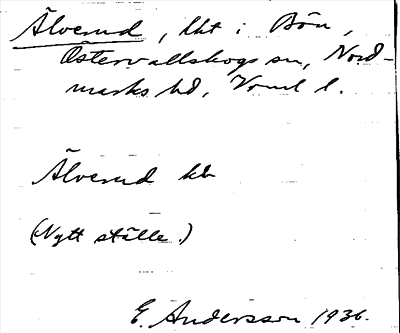 Älverud, lht i Bön,
Östervallskogs sn, Nord-
marks hd, Vrml l.
Älverud hb
(Nytt ställe.)
E. Andersson 1936.